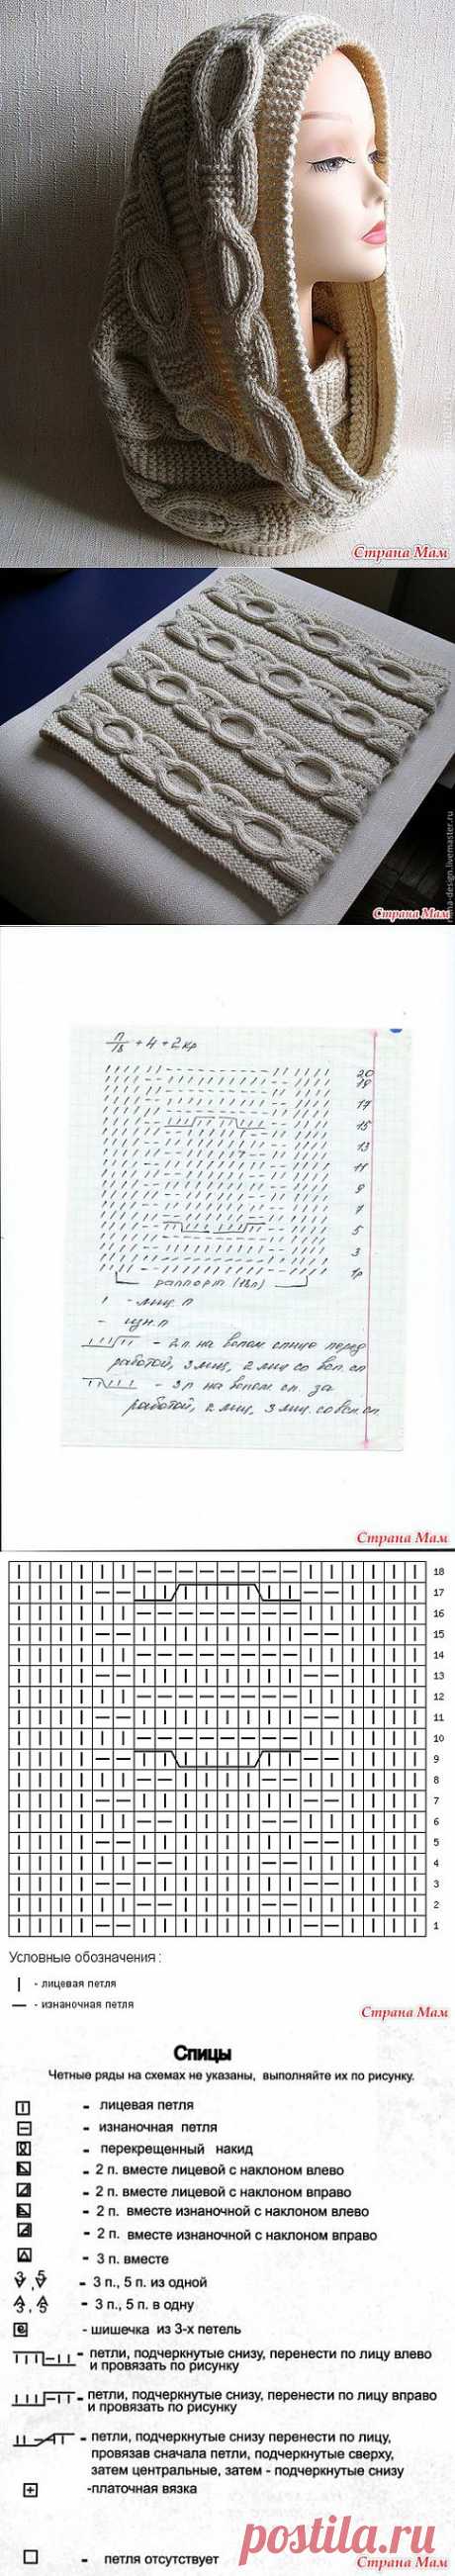 Страна Мам
Страна Мам
п/18 + 4 + 2 кр
20
19
17
15
13
11
9
7
5
3
1р
раппорт (18п)
ı - лиц. п
- изн. п
- 2 п. на вспом. спицу перед
работой, 3 лиц, 2 лиц со всп. сп
- 3 п на вспом. сп. за
работой, 2 лиц, 3 лиц. со всп. сп.
Страна Мам
18
17
16
15
14
13
12
11
10
9
8
7
6
5
4
3
2
1
Условные обозначения :
| - лицевая петля
— - изнаночная петля
Страна Мам
Спицы
Четные ряды на схемах не указаны, выполняйте их по рисунку.
- лицевая петля
- изнаночная петля
- перекрещенный накид
- 2 п. вместе лицевой с наклоном влево
- 2 п. вместе лицевой с наклоном вправо
- 2 п. вместе изнаночной с наклоном влево
- 2 п. вместе изнаночной с наклоном вправо
- 3 п. вместе
3, 5 - 3 п., 5 п. из одной
3, 5 - 3 п., 5 п. в одну
- шишечка из 3-х петель
- петли, подчеркнутые снизу, перенести по лицу влево
и провязать по рисунку
- петли, подчеркнутые снизу, перенести по лицу вправо
и провязать по рисунку
- петли, подчеркнутые снизу перенести по лицу,
провязав сначала петли, подчеркнутые сверху,
затем центральные, затем - подчеркнутые снизу
+ -платочная вязка
- петля отсутствует
Страна Мам
postila.ru